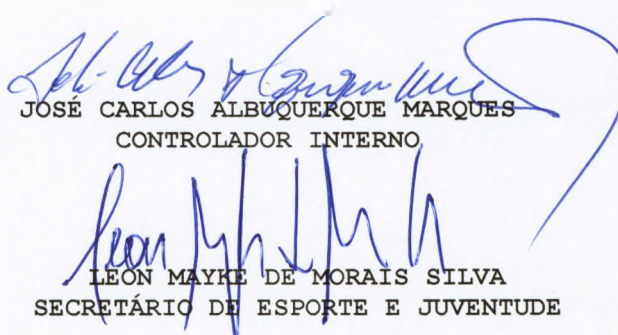 JOSÉ CARLOS ALBUQUERQUE MARQUES
CONTROLADOR INTERNO
Leon
LEON MAYKE DE MORAIS SILVA
SECRETÁRIO DE ESPORTE E JUVENTUDE